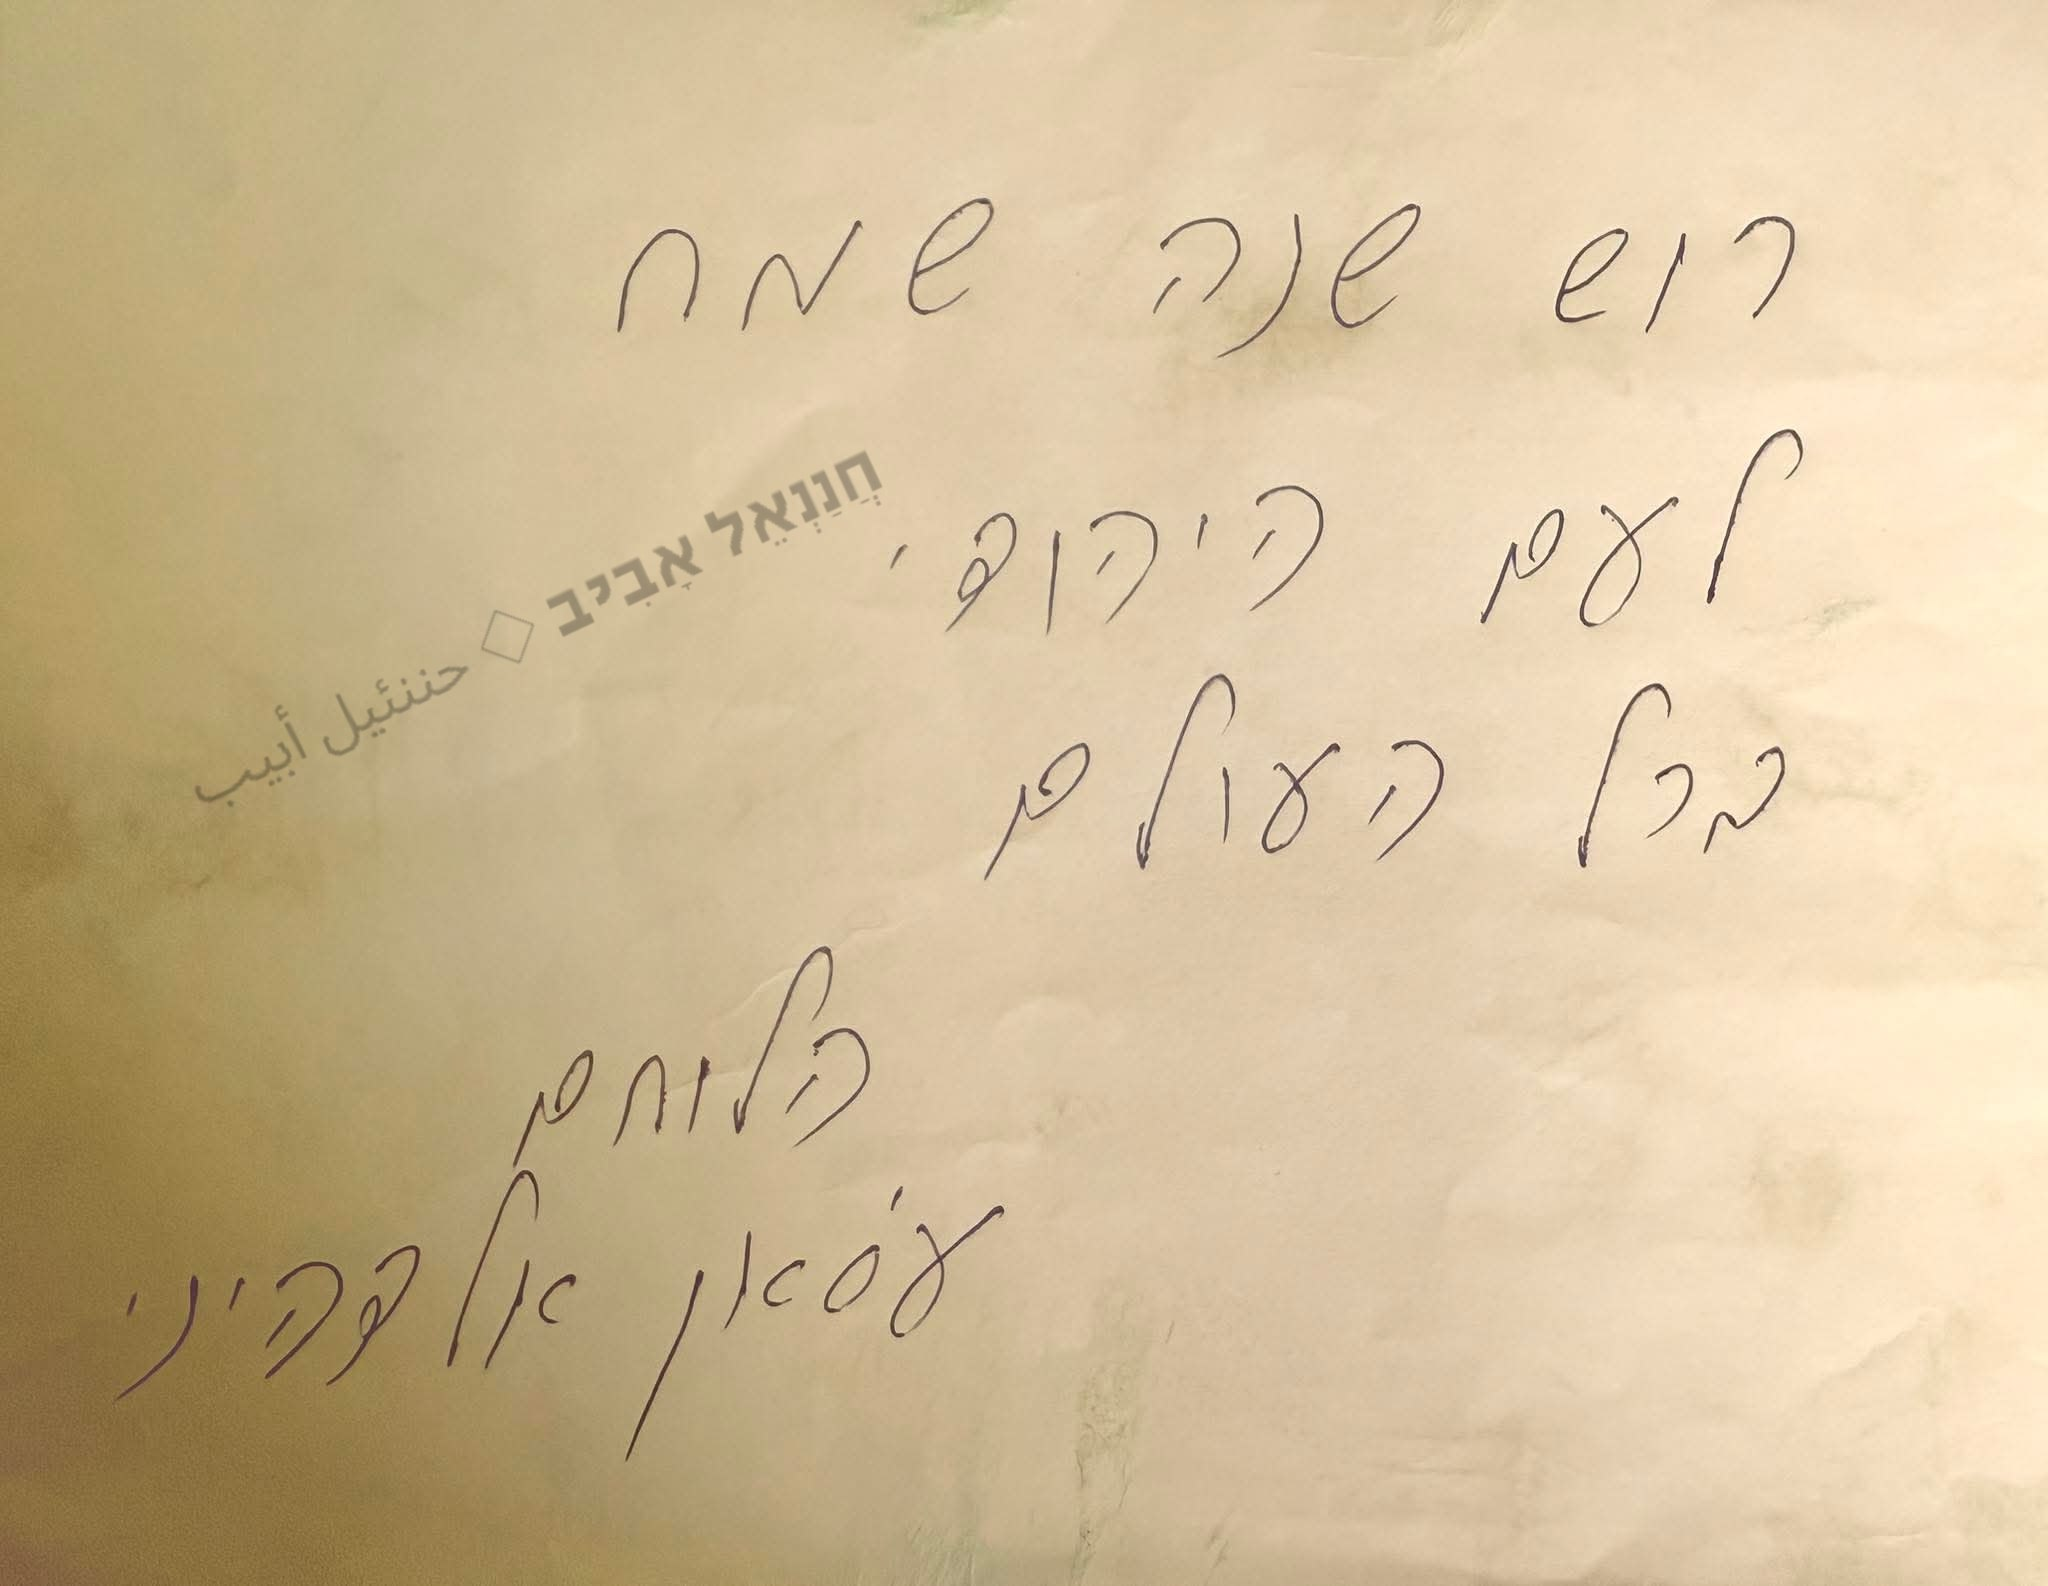 רוש שנה שמח
לעם היהודי
חֲנַנְאֵל אָבִיב ◇ حننئيل أبيب
בכל העולם
הלוחם
ע'סאן אל דהיני